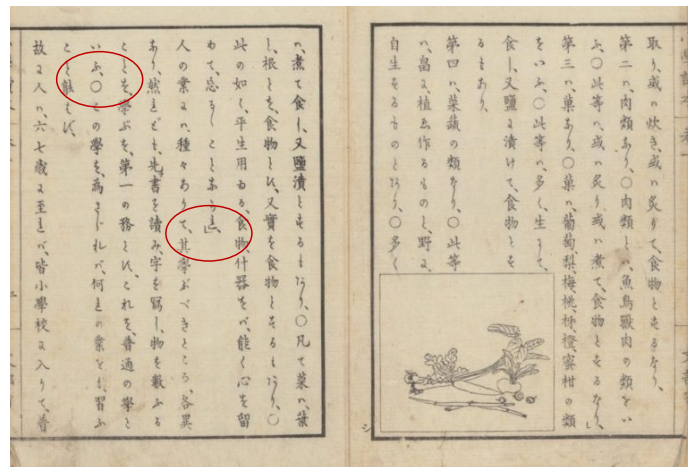 取り、或ハ炊き、或ハ炙りて、食物とするなり、
第二ハ、肉類あり、○肉類とハ、魚鳥獸肉の類をい
ふ、○此等ハ、或ハ炙り或ハ煮て、食物とするなり、」
第三ハ、菓あり、○菓ハ、葡萄、梨、梅、桃、柿、橙、蜜柑の類
をいふ、○此等ハ、多く生にて、
食し、又鹽に漬けて、食物とす
るもあり、
第四ハ、菜蔬の類なり、○此等
ハ、畠に植ゑ作るものと、野に、
自生するものとあり、○多く
ハ、煮て食し、又鹽漬とするもあり、○凡て菜ハ、葉
と、根とを、食物とし、又實を食物とするもあり、○
此の如く、平生用ゐる、食物、什器をバ、能く心を留
めて、忘るゝことあるな」
人の業にハ、種々ありて、其學ぶべきところ、各異
あり、然れども、先書を讀み、字を寫し、物を數ふる
ことを、學ぶを、第一の務とし、これを普通の學と
いふ、○この學を、爲さゞれバ、何れの業をも、習ふ
こと能はじ、
故に人ハ、六七歳に至れバ、皆小學校に入りて、普